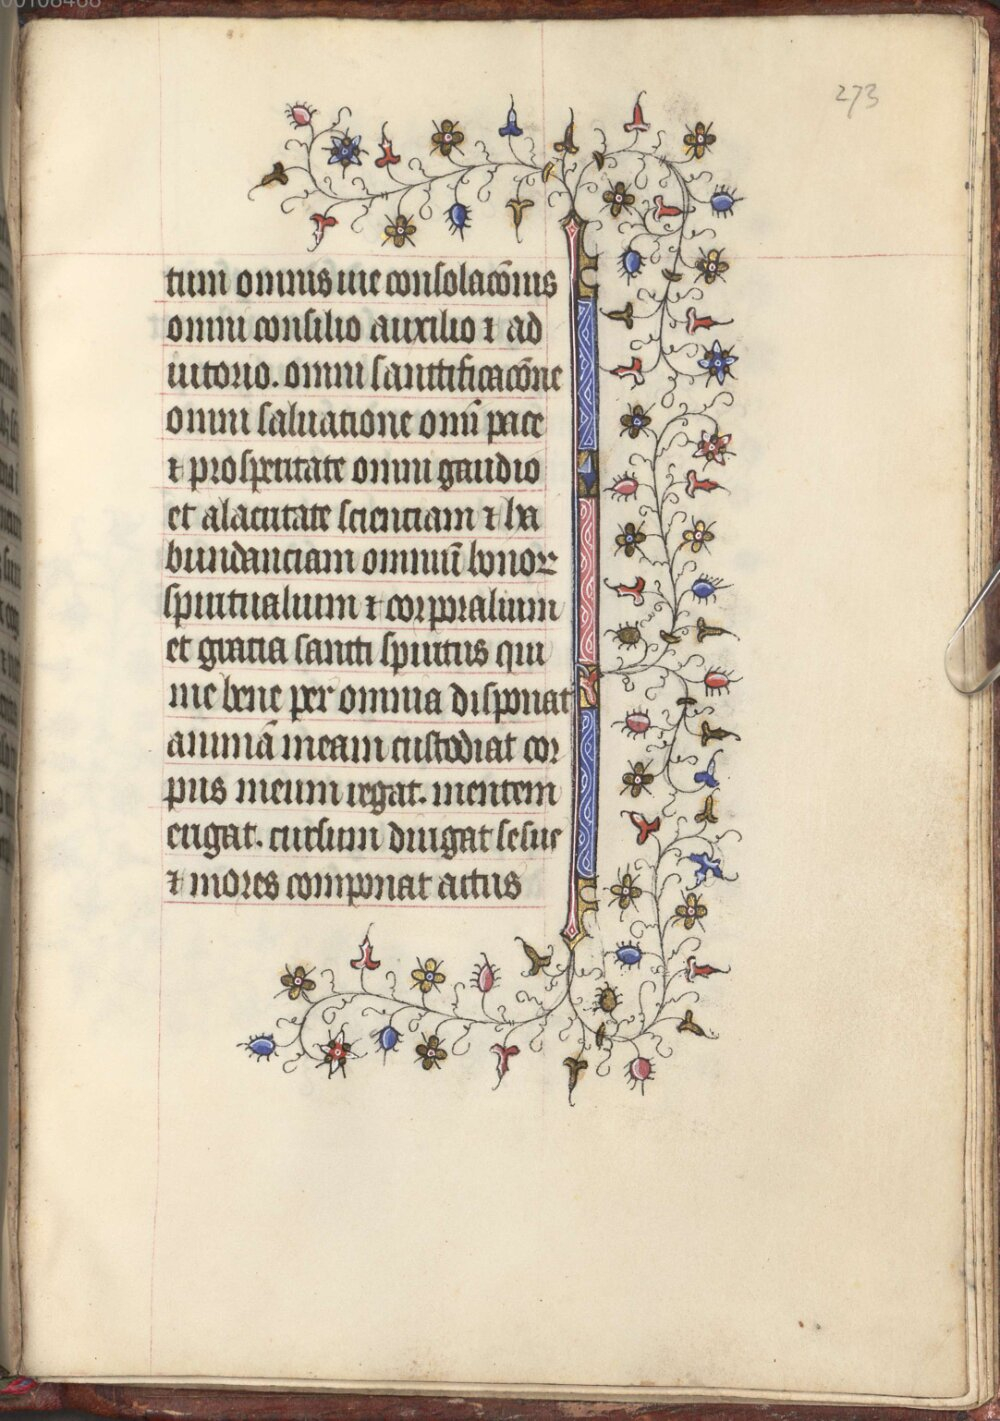 00108468
273
tum omnis uie consolacōnis
omni consilio auxilio ⁊ ad
iutorio. omni sanctificacōne
omni saluatione omī pace
⁊ prosperitate omni gaudio
et alacritate scienciam ⁊ ha
bundanciam omniū bonoꝝ
spiritualium ⁊ corporalium
et gratia sancti spiritus qui
me bene per omnia disponat
animā meam custodiat cor
pus meum regat. mentem
erigat. cursum dirigat sesus
⁊ mores componat actus